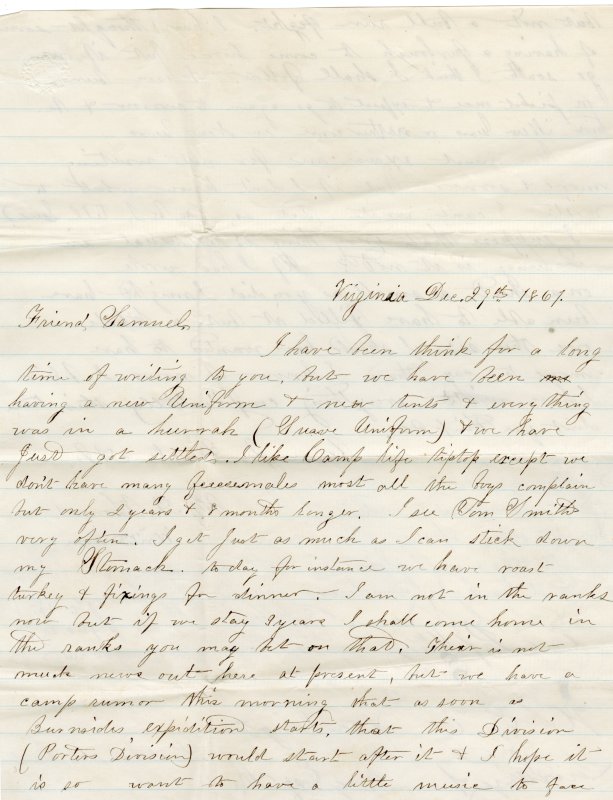 Virginia Dec. 29th 1861.
Friend Samuel
I have been think for a long
time of writing to you, but we have been
having a new Uniform & new tents & everything
was in a hurrah (Zuave Uniform) & we have
Just got settled. I like Camp life tiptop except we
dont have many feaesemales most all the boys complain
but only 2 years & 8 months longer. I see Tom Smith
very often. I get Just as much as I can stick down
my Stomack. to day for instance we have roast
turkey & fixings for dinner. I am not in the ranks
now but if we stay 2 years I shall come home in
the ranks you may bet on that. Their is not
much news out here at present, but we have a
camp rumor this morning that as soon as
Burnsides expidition starts, that this Division
(Porters Division) would start after it & I hope it
is so want to have a little music to face